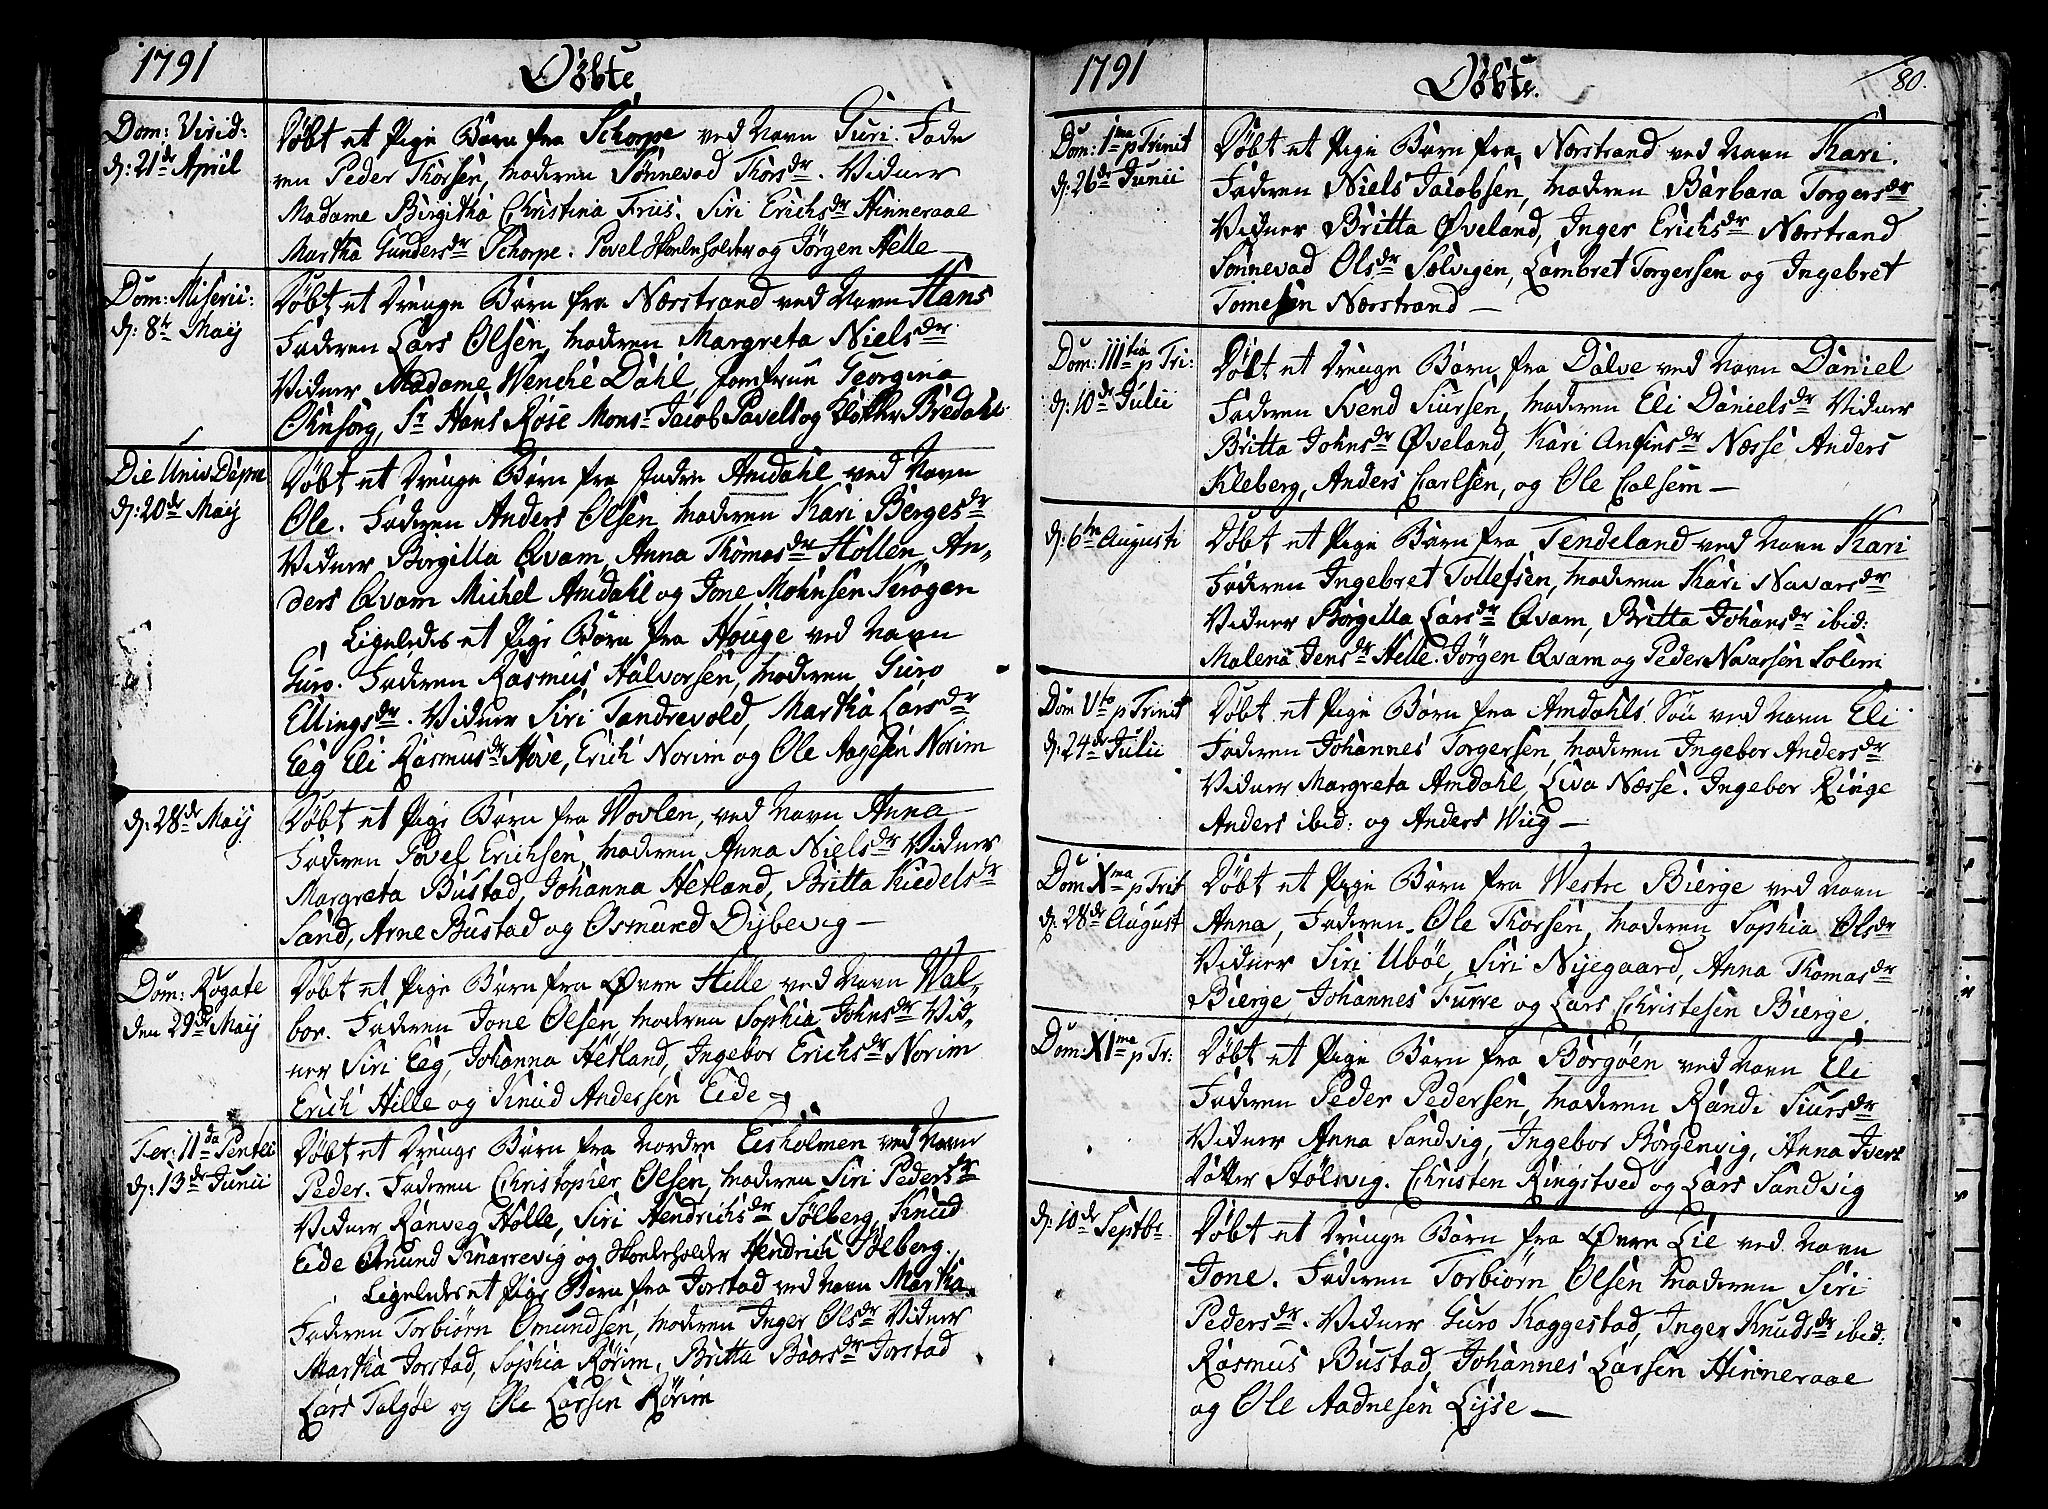 1791
Døbte
Dom: Virid:
d: 21de April
Døbt et Pige Barn fra Schorpe ved Navn Guri. Fade
ren Peder Thorsen, Moderen Sønnevad Thorsdr. Vidner
Madame Birgitha Christina Friis. Siri Erichsdr Hinneraae
Martha Gundersdr Schorpe. Povel Skoeleholder og Jørgen Helle
Dom: Miseric:
d: 8de Maij
Døbt et Drenge Barn fra Nærstrand ved Navn Hans
Faderen Lars Olsen, Moderen Margreta Nielsdr.
Vidner Madame Wenche Dahl, Jomfrue Georgina
Ohnsorg, Sr Hans Rose Monsr Jacob Pavels og Klokker Bredahl.
Die Univ Depre
d: 20de Maij
Døbt et Drenge Barn fra Indre Amdahl ved Navn
Ole. Faderen Anders Olsen, Moderen Kari Bergesdr
Vidner Birgilla Qvam, Anna Thomasdr Hollen, An-
ders Qvam Michel Amdahl og Jone Mohnsen Scrogen
Ligeledes et Pige Barn fra Houge ved Navn
Guro. Faderen Rasmus Halvorsen, Moderen Guro
Ellingsdr. Vidner Siri Tandrevold, Martha Larsdr
Eeg Eli Rasmusdr Hove, Erich Norim og Ole Aagesen Norim
d: 28de Maij
Døbt et Pige Barn fra Wovlen, ved Navn Anna
Faderen Povel Erichsen, Moderen Anna Nielsdr Vidner
Margreta Bustad, Johanna Hetland, Britta Kiedelsdr
Sand, Arne Bustad og Osmund Dybevig —
Dom: Rogate
den 29de Maij
Døbt et Pige Barn fra Øvre Hille ved Navn Wal-
bor. Faderen Jone Olsen, Moderen Sophia Johnsdr Vid-
ner Siri Eeg, Johanna Hetland, Ingebor Erichsdr Norim
Erich Hille og Knud Andersen Eide —
Fer: IIda Pentec
d: 13de Junii
Døbt et Drenge Barn fra Nordre Eisholmen ved Navn
Peder. Faderen Christopher Olsen, Moderen Siri Pedersdr
Vidner Ranveg Holle, Siri Hendrichsdr Sølberg, Knud
Eide Omund Knarrevig og Skoeleholder Hendrich Sølberg.
Ligeledes et Pige Barn fra Jorstad ved Navn Martha.
Faderen Torbiørn Omundsen, Moderen Inger Olsdr Vidner
Martha Jorstad, Sophia Rørim, Britta Baarsdr Jorstad
Lars Talgøe og Ole Larsen Rørim
1791
Døbte.
80.
Dom: 1ma p Trinit
d: 26de Junii
Døbt et Pige Barn fra Nærstrand ved Navn Kari.
Faderen Niels Jacobsen, Moderen Barbara Torgersdr
Vidner Britta Øveland, Inger Erichsdr Nærstrand
Sønnevad Olsdr Sælvigen, Lambret Torgersen og Ingebret
Tomesen Nærstrand —
Dom: IIItia p Tri:
d: 10de Julii
Døbt et Drenge Barn fra Dalve ved Navn Daniel
Faderen Svend Siursen, Moderen Eli Danielsdr Vidner
Britta Johnsdr Øveland, Kari Anfinsdr Næsse Anders
Kleberg, Anders Carlsen, og Ole Calsem —
d: 6te Augusti
Døbt et Pige Barn fra Tendeland ved Navn Kari
Faderen Ingebret Tollefsen, Moderen Kari Navarsdr
Vidner Børgilla Larsdr Qvam, Britta Johansdr ibid:
Malena Jensdr Helle. Jørgen Qvam og Peder Navarsen Solim
Dom Vto p Trinit
d: 24de Julii
Døbt et Pige Barn fra Amdahls Søe ved Navn Eli
Faderen Johannes Torgersen, Moderen Ingebor Andersdr
Vidner Margreta Amdahl, Liva Næsse. Ingebor Ringe
Anders ibid: og Anders Wiig —
Dom: Xma p Trit
d: 28de August
Døbt et Pige Barn fra Westre Bierge ved Navn
Anna, Faderen Ole Thorsen, Moderen Sophia Olsdr
Vidner Siri Ubøe, Siri Nyegaard, Anna Thomasdr
Bierge, Johannes Furre og Lars Christesen Bierge.
Dom: XIma p Tr:
Døbt et Pige Barn fra Borgøen ved Navn Eli
Faderen Peder Pedersen, Moderen Randi Siursdr
Vidner Anna Sandvig, Ingebor Børgenvig, Anna Ivers
Datter Stølsvig. Christen Ringstved og Lars Sandvig
d: 10de Septbr
Døbt et Drenge Barn fra Øvre Lie ved Navn
Jone. Faderen Torbiørn Olsen Moderen Siri
Pedersdr. Vidner Guro Koggestad, Inger Knudsdr ibid:
Rasmus Bustad, Johannes Larsen Hinneraae
og Ole Aadnesen Lyse —